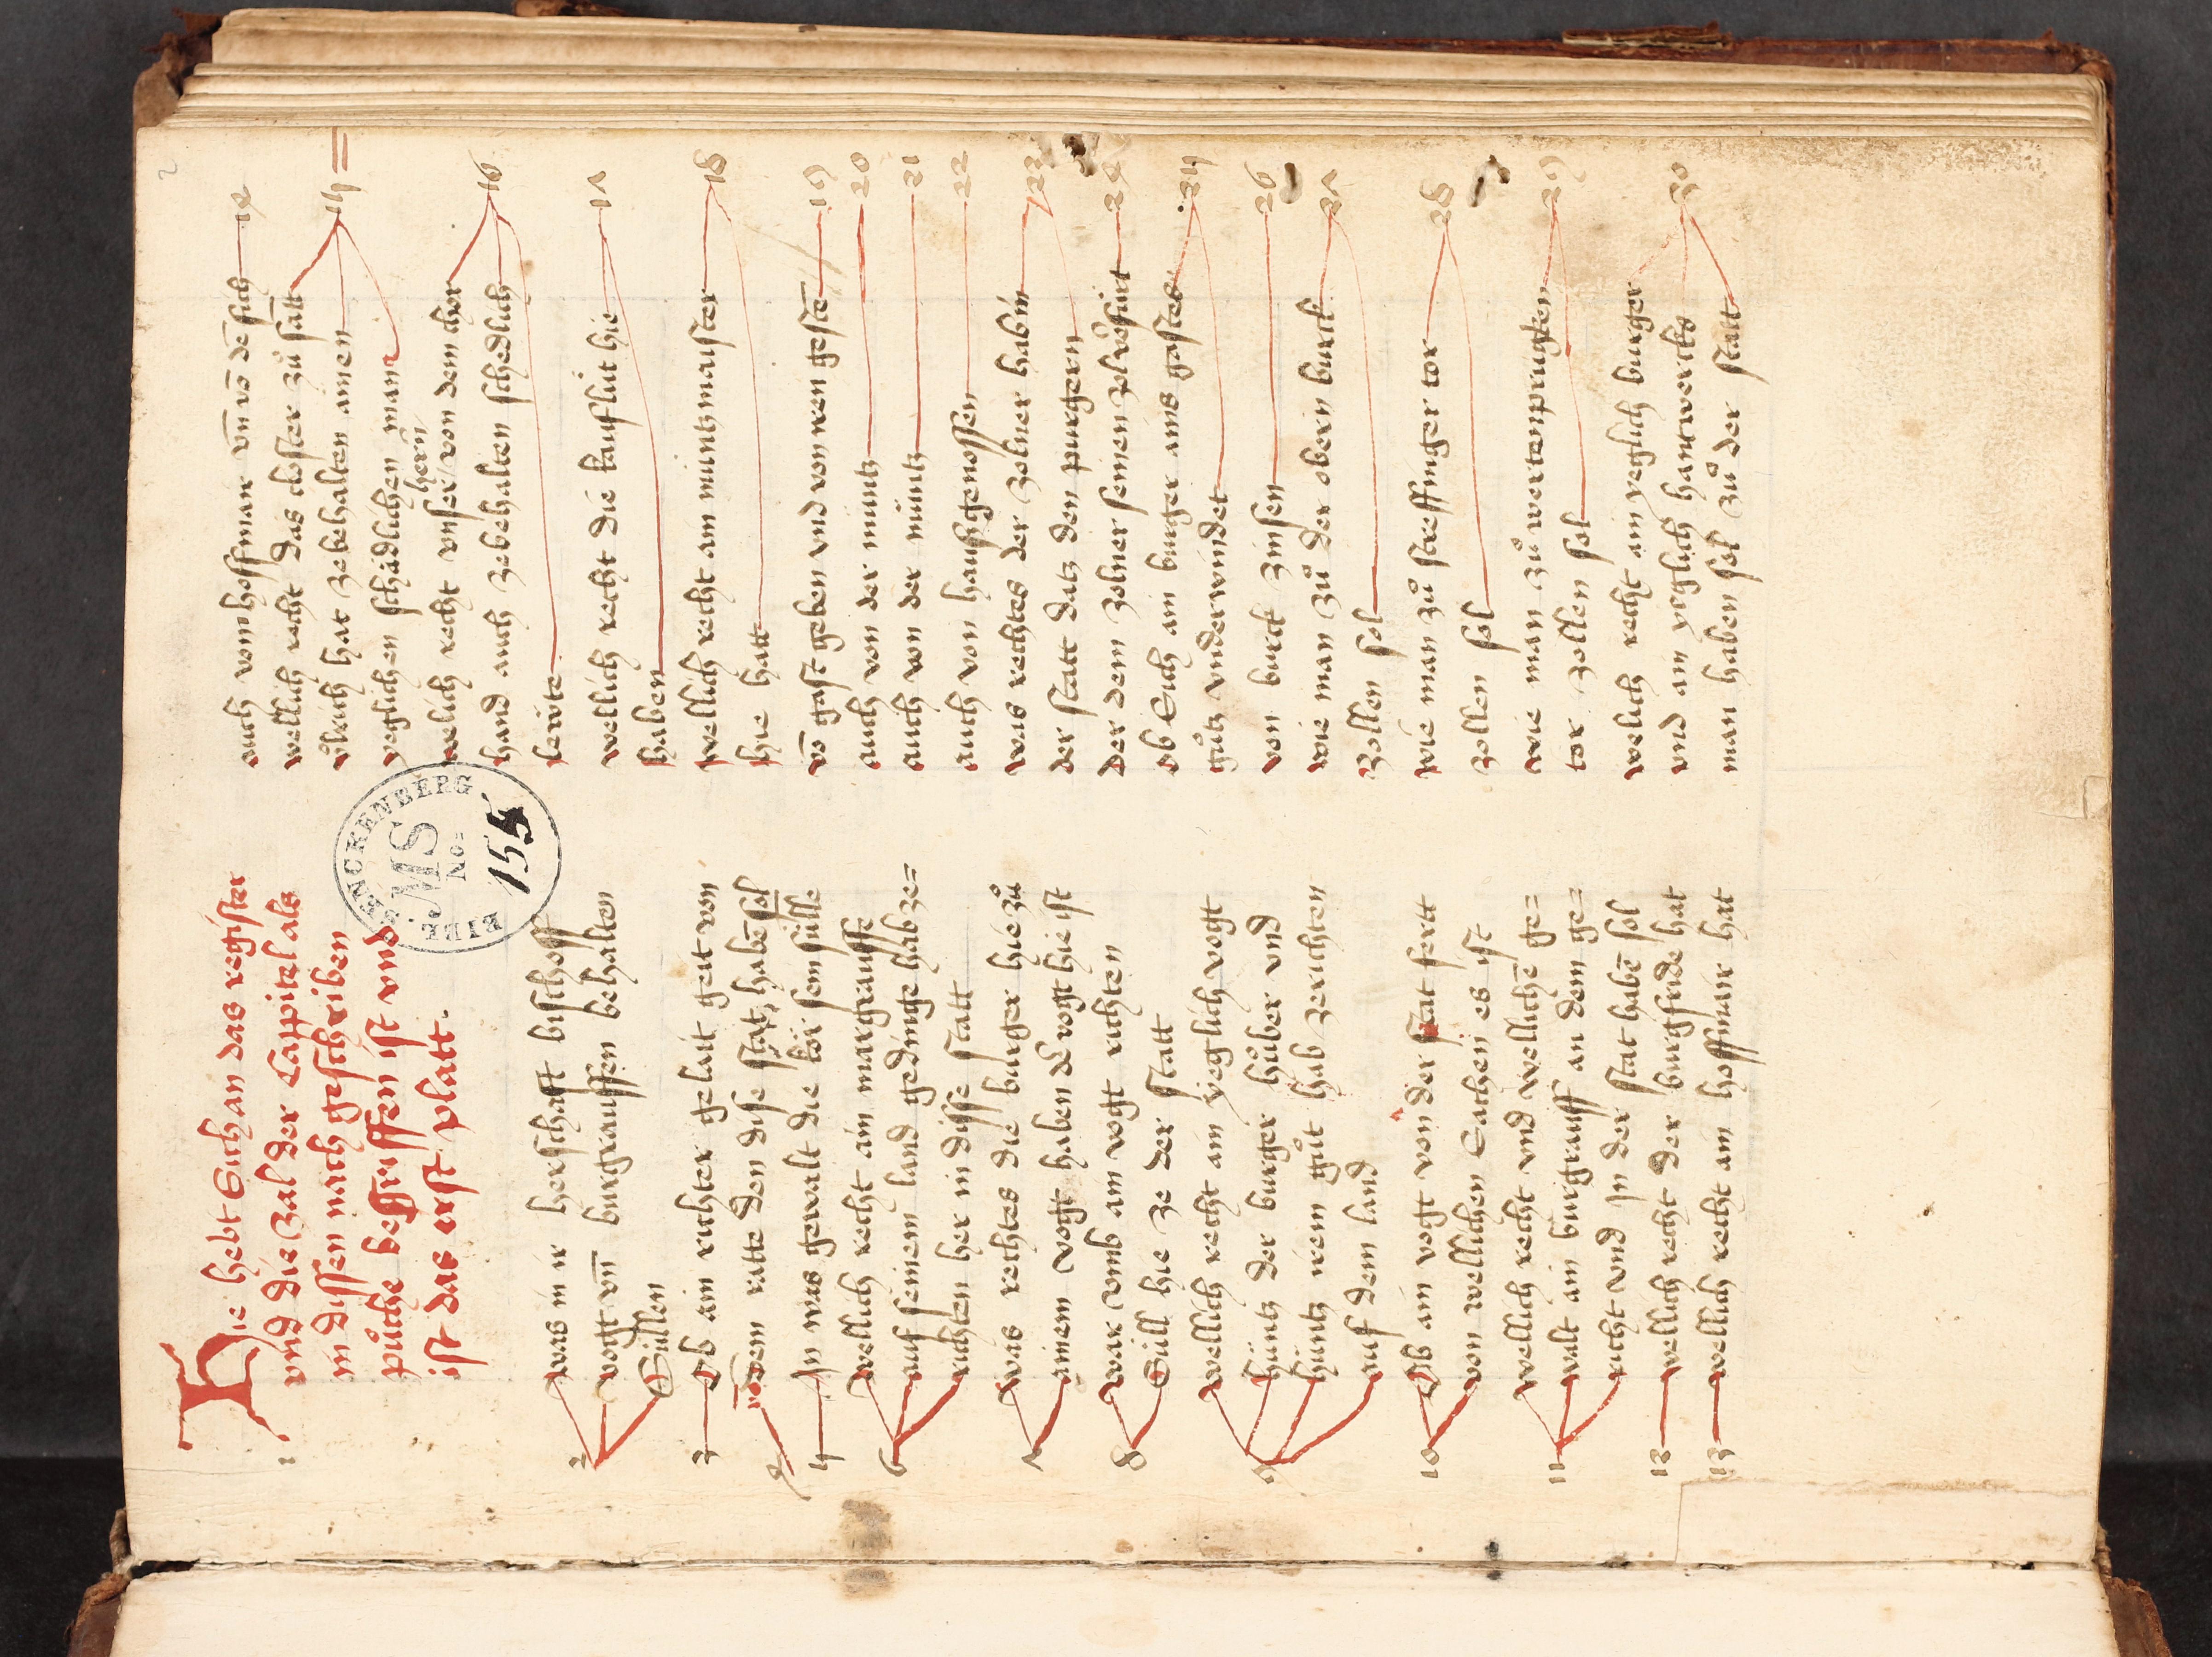 2
Hie hebt Sich an das register
vnd die zal der Cappitel als
in dissen nach geschriben
půche begriffen ist vnd
ist das erst platt.
1
BIBL. SENCKENBERG
MS
No.
155
2 Was in ir herschafft bischoff
vogt vn̄ burgrauffen behalten
Süllen
3 Ob ain richter gelait geit von
4 vō wem rätte den dise stat habē sol
5 In was gewalt die kör sein sülle
6 wellich recht ain margrauffe
auf seinem land gedinge hab ze=
richten her in disse statt
7 was rechtes die burger hie zů
ainem vogt haben der vogt hie ist
8 war vmb ain vogt richten
Süll hie ze der statt
9 wellich recht ain yeglich vogt
hüntz der burger hůber vnd
hüntz irem gůt hab zerichten
auf dem land
10 Ob ain vogt von der stat fertt
von wellichen Sachen es ist
11 wellich recht vnd wellichē ge=
walt ain burgrauff an dem ge=
richt vnd In der stat habē sol
12 wellich recht der burgfride hat
13 wellich recht ain hoffmair hat
auch vom hoffmair vn̄ vō dē sich 14
wellich recht das closter zů sātt 15
ůlrich hat ze behalten ainen
yeglichen schädlichen mann
welich recht vnser herrn von dem chor 16
hand auch zebehalten schedlich
lewte
wellich recht die kauflüt hie 17
haben
wellich recht ain müntzmaister 18
hie hatt
vō gast geben vnd von iren gestē 19
auch von der müntz 20
auch von der müntz 21
auch von haußgenossen 22
was rechtes der zolner hab in 23
der statt datz den purgern
der dem zolner seinen zol v̊ofürt 24
ob Sich ain burger ains gastes 25
gůtz vnderwindet
von burck zinsen 26
wie man zů der obern burck 27
zollen sol
wie man zů straffinger tor 28
zollen sol
wie man zů wertenprugken 29
tor zollen sol
welich recht ain yeglich burger 30
vnd ain yeglich hantwercks
man haben sol zů der statt